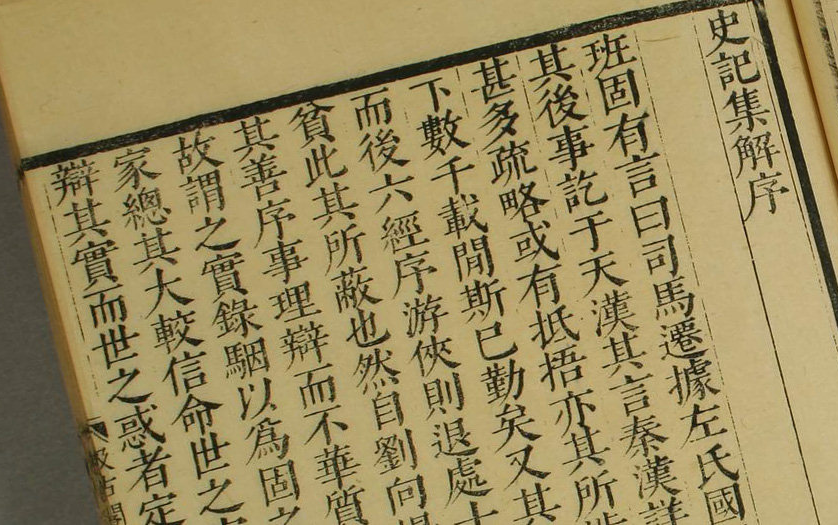 史記集解序
班固有言曰司馬遷據左氏國
其後事訖于天漢其言秦漢詳
甚多疏略或有抵捂亦其所
下數千載閒斯已勤矣又其
而後六經序游俠則退處士
貧此其所蔽也然自劉向揚
其善序事理辯而不華質
故謂之實錄駰以爲固之
家總其大較信命世之
辯其實而世之惑者定
汲古閣